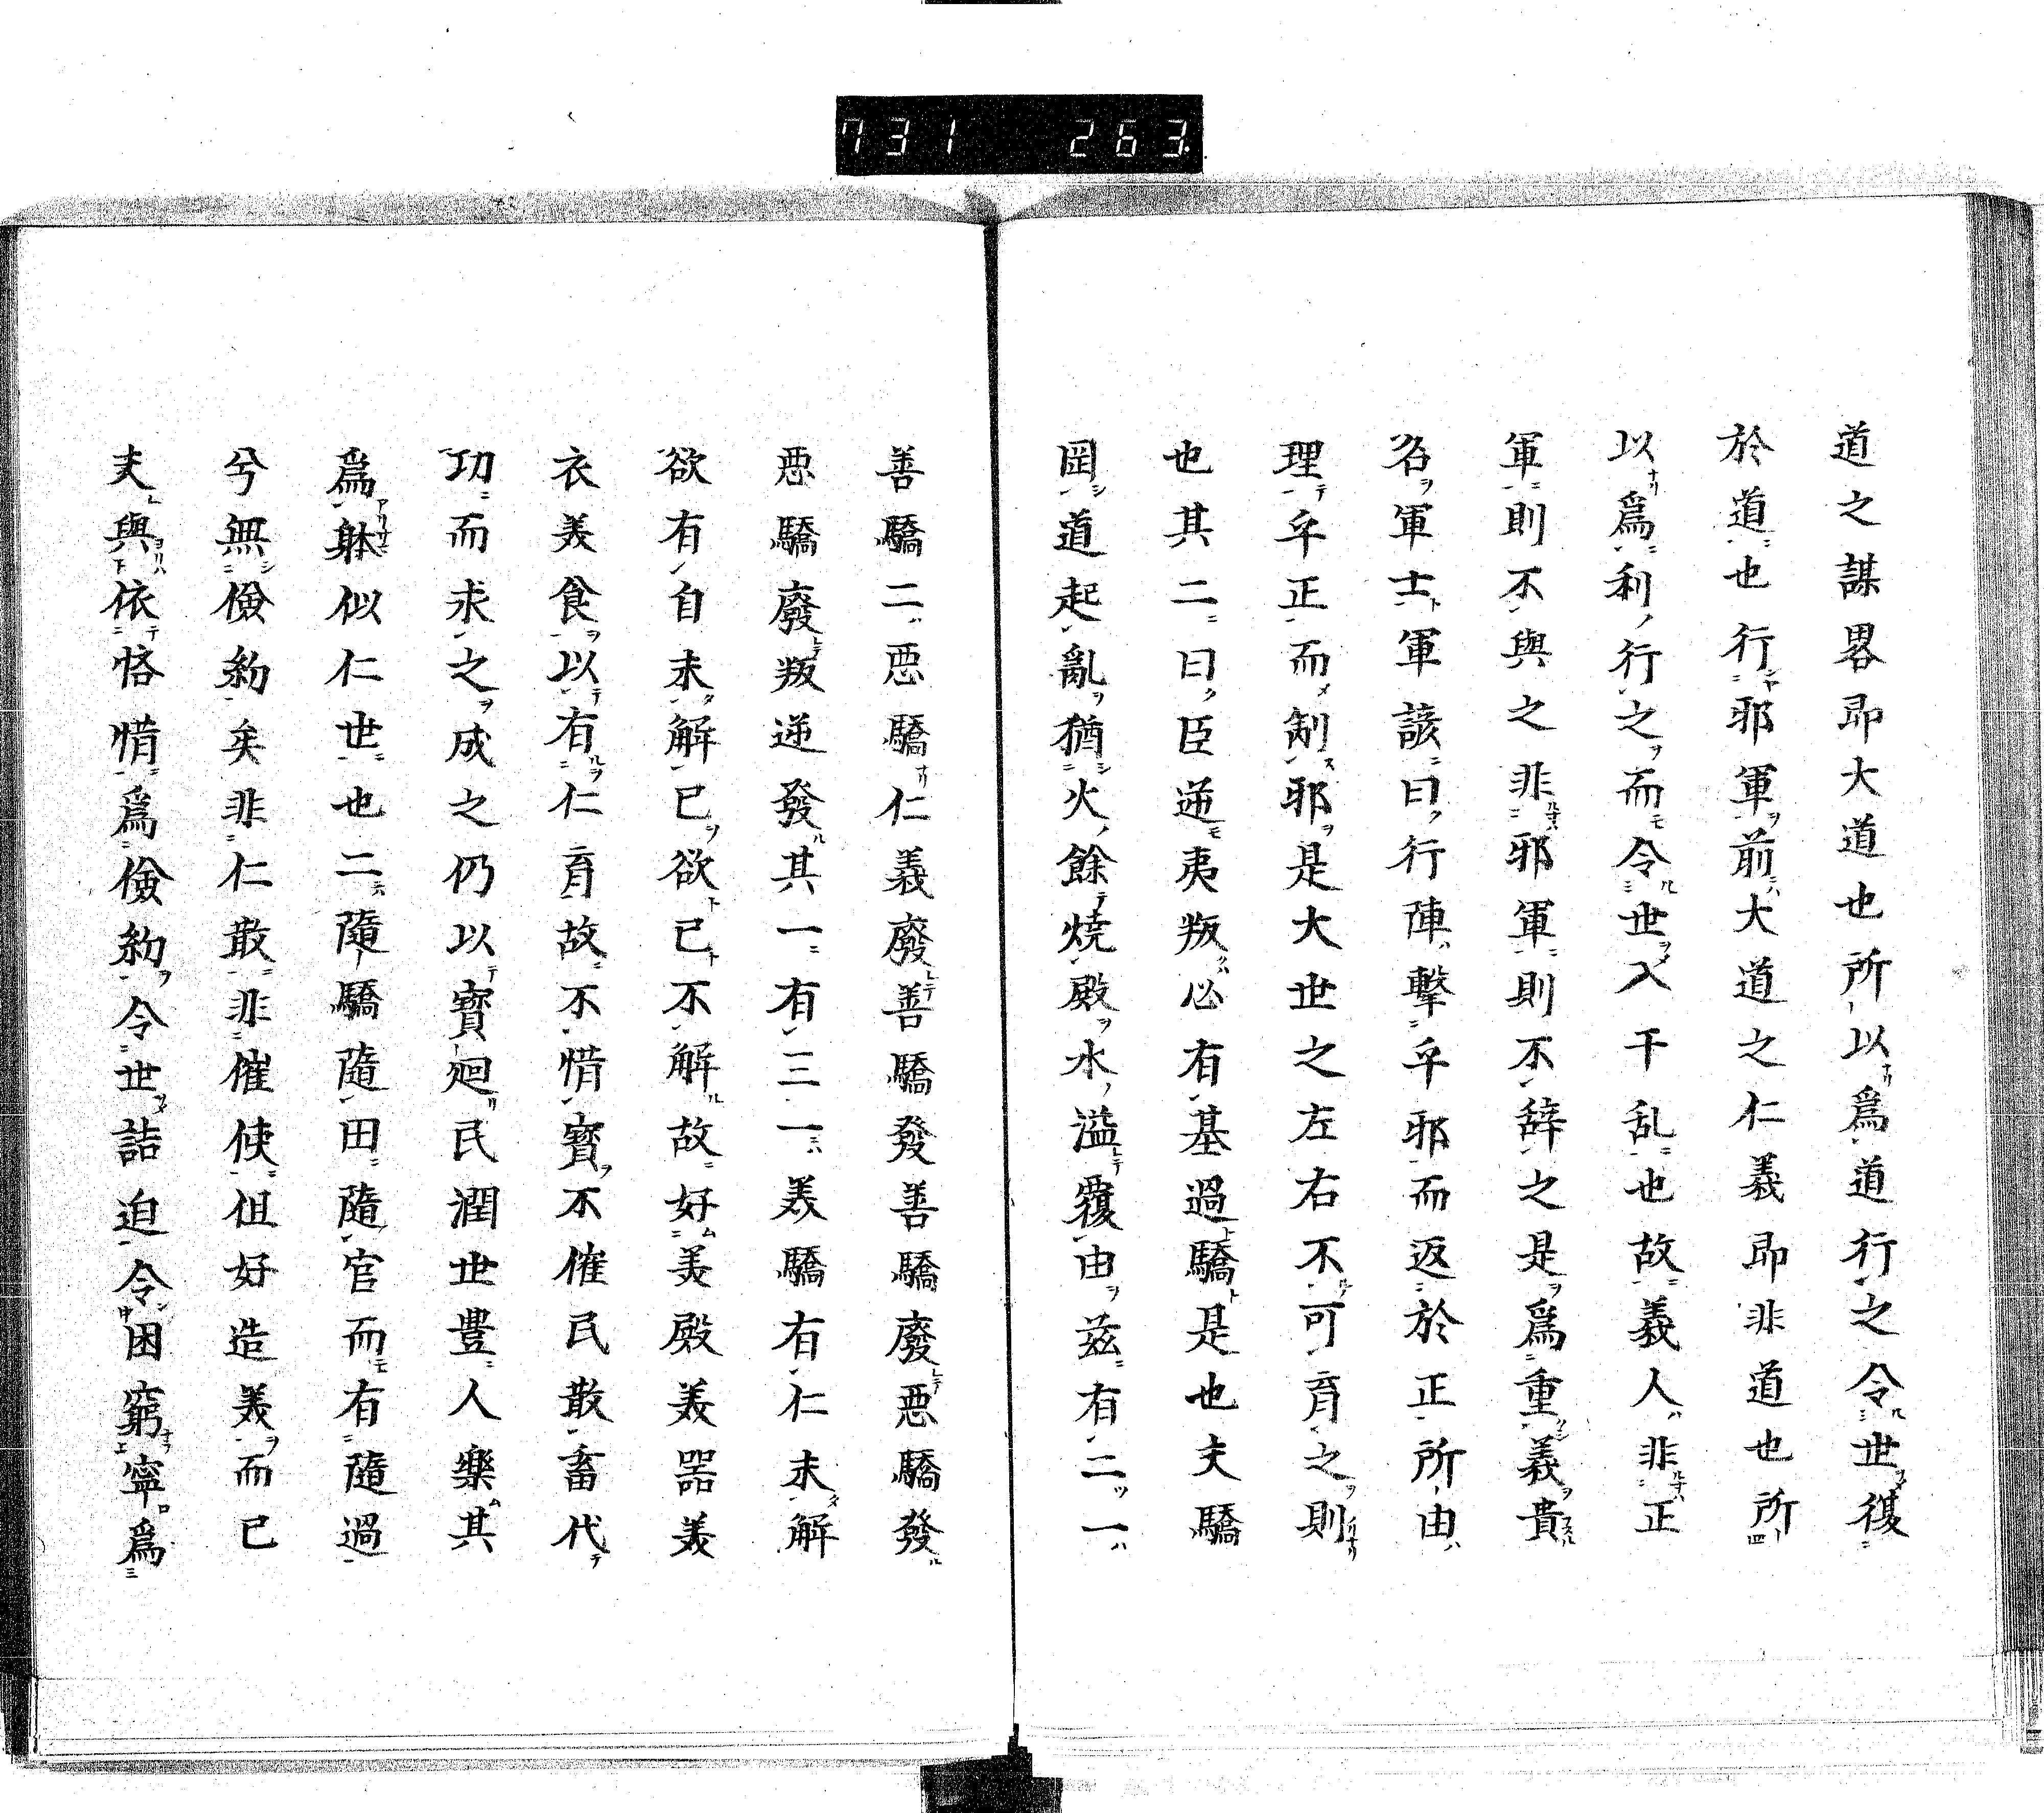 731 263
道之謀畧即大道也所以爲道行之令世復
於道也行邪軍前大道之仁義即非道也所
以爲利行之而令世入干乱也故義人非正
軍則不與之非邪軍則不辞之是爲重義貴
名軍士軍該曰行陣擊乎邪而返於正所由
理乎正而制邪是大世之左右不可育之則
也其二曰臣逆夷叛必有基過驕是也夫驕
罔道起亂猶火餘燒殿水溢覆由茲有二一
善驕二惡驕仁義廢善驕發善驕廢惡驕發
惡驕廢叛逆發其一有三一美驕有仁未解
欲有自未解已欲已不解故好美殿美器美
衣美食以有仁育故不惜寳不催民散畜代
功而求之成之仍以寳廻民潤世豊人樂其
爲躰似仁世也二隨驕隨田隨官而有隨過
兮無儉約矣非仁散非催使但好造美而已
夫與依悋惜爲儉約令世詰迫令困窮寧爲